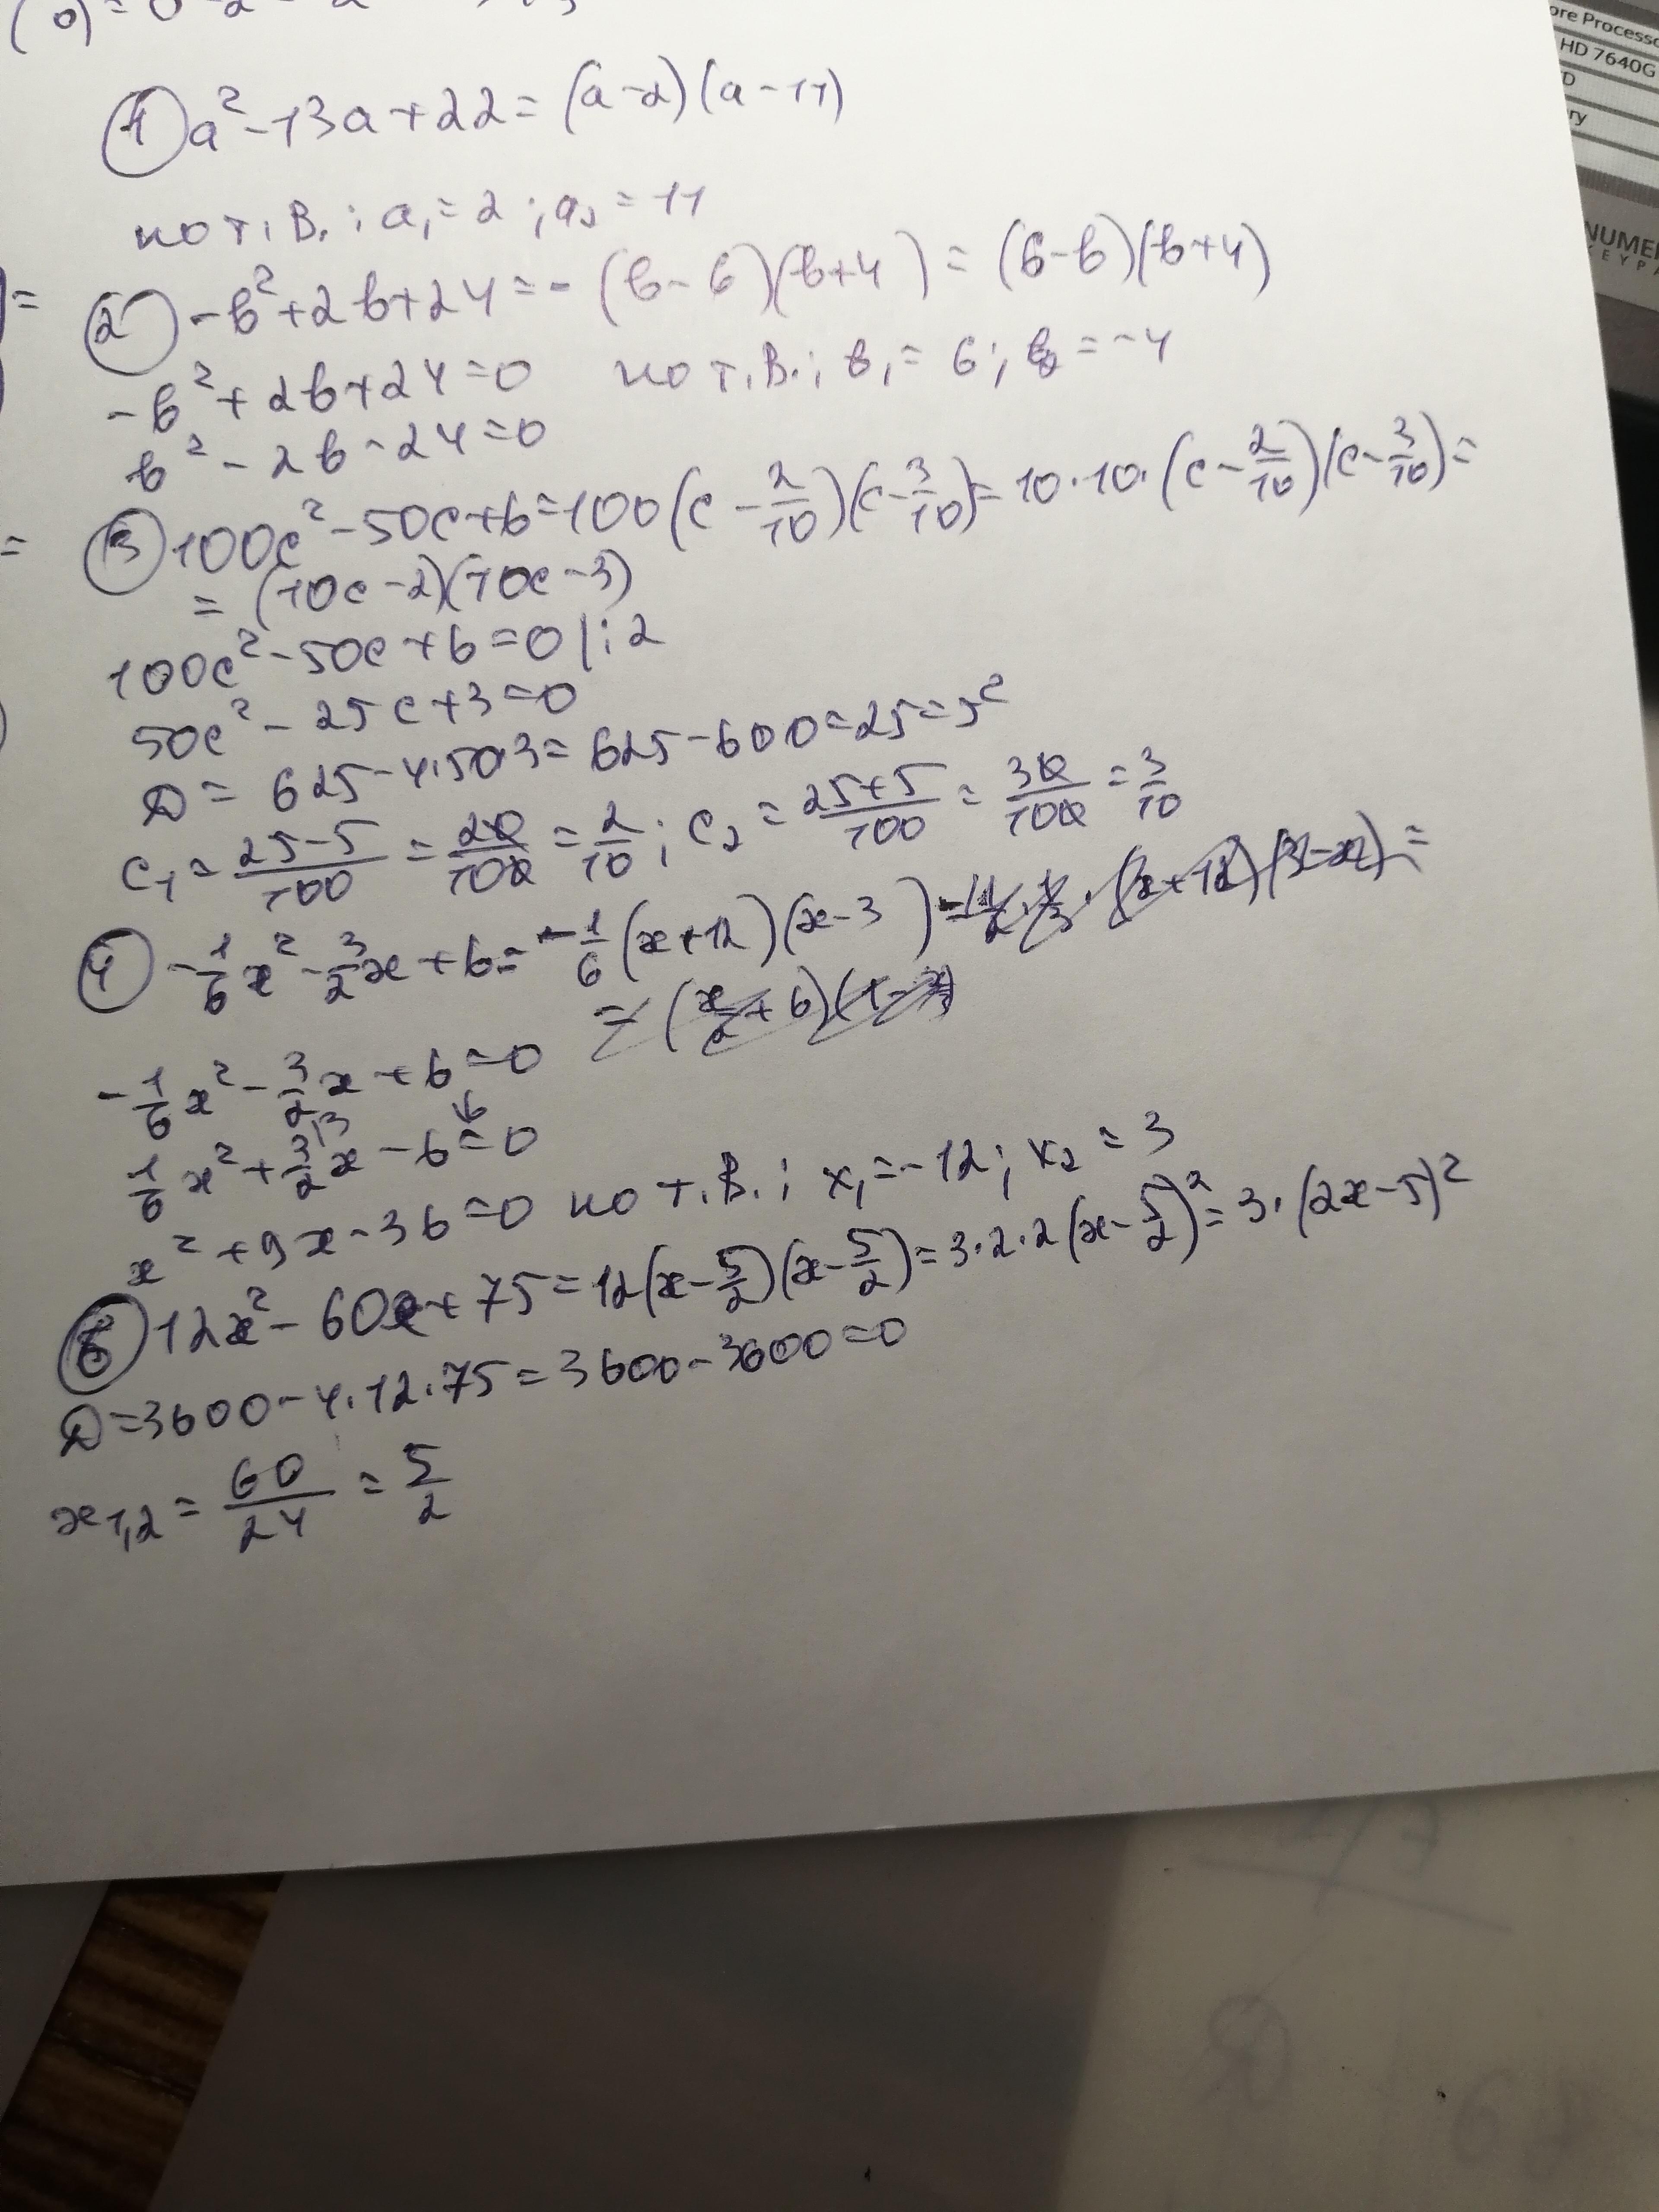 (0)=0-2-2
ore Processo
HD 7640G
D
ry
NUMER
KEYPA
① a² - 13a + 22 = (a - 2)(a - 11)
по т. В.: a₁ = 2; a₂ = 11
=
② -b² + 2b + 24 = -(b - 6)(b + 4) = (6 - b)(b + 4)
-b² + 2b + 24 = 0 по т. В.: b₁ = 6; b₂ = -4
b² - 2b - 24 = 0
=
③ 100c² - 50c + 6 = 100(c - 2/10)(c - 3/10) = 10·10·(c - 2/10)(c - 3/10) =
= (10c - 2)(10c - 3)
100c² - 50c + 6 = 0 |:2
50c² - 25c + 3 = 0
D = 625 - 4·50·3 = 625 - 600 = 25 = 5²
c₁ = (25-5)/100 = 20/100 = 2/10; c₂ = (25+5)/100 = 30/100 = 3/10
④ -1/6x² - 3/2x + 6 = -1/6(x + 12)(x - 3)
-1/6x² - 3/2x + 6 = 0
1/6x² + 3/2x - 6 = 0
x² + 9x - 36 = 0 по т. В.: x₁ = -12; x₂ = 3
12x² - 60x + 75 = 12(x - 5/2)(x - 5/2) = 3·2·2(x - 5/2)² = 3·(2x - 5)²
D = 3600 - 4·12·75 = 3600 - 3600 = 0
x₁,₂ = 60/24 = 5/2